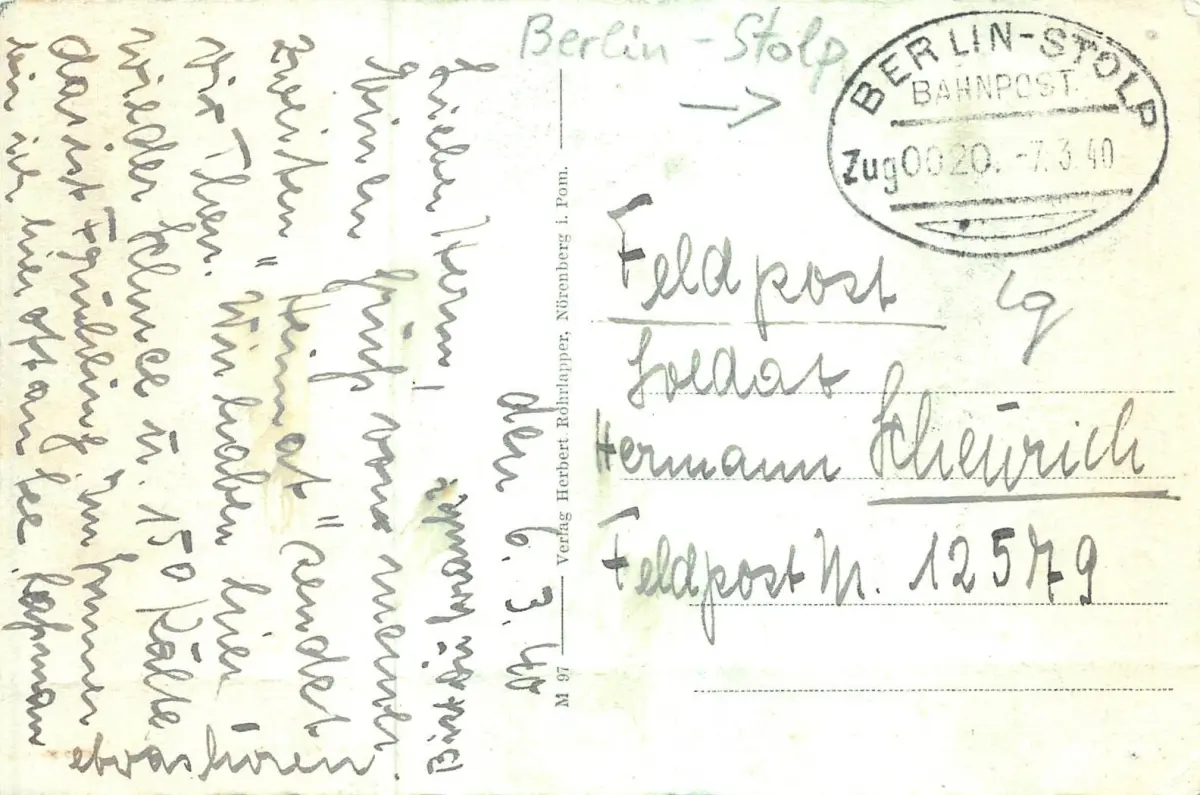 Berlin - Stolp
→
BERLIN-STOLP
BAHNPOST
Zug 0020. -7.3.40
Feldpost
Soldat
Hermann Scheurich
Feldpost Nr. 12579
M 97 Verlag Herbert Rohrlapper, Nörenberg i. Pom.
den 6. 3. 40
Lieber Herm!
Einen Gruß von meiner
zweiten "Heimat" sendet
Dir Ther. Wir haben hier
wieder Schnee u. 15° Kälte
das ist Frühling. Im Sommer
bin ich hier oft am See. Laß mal
etwas hören.